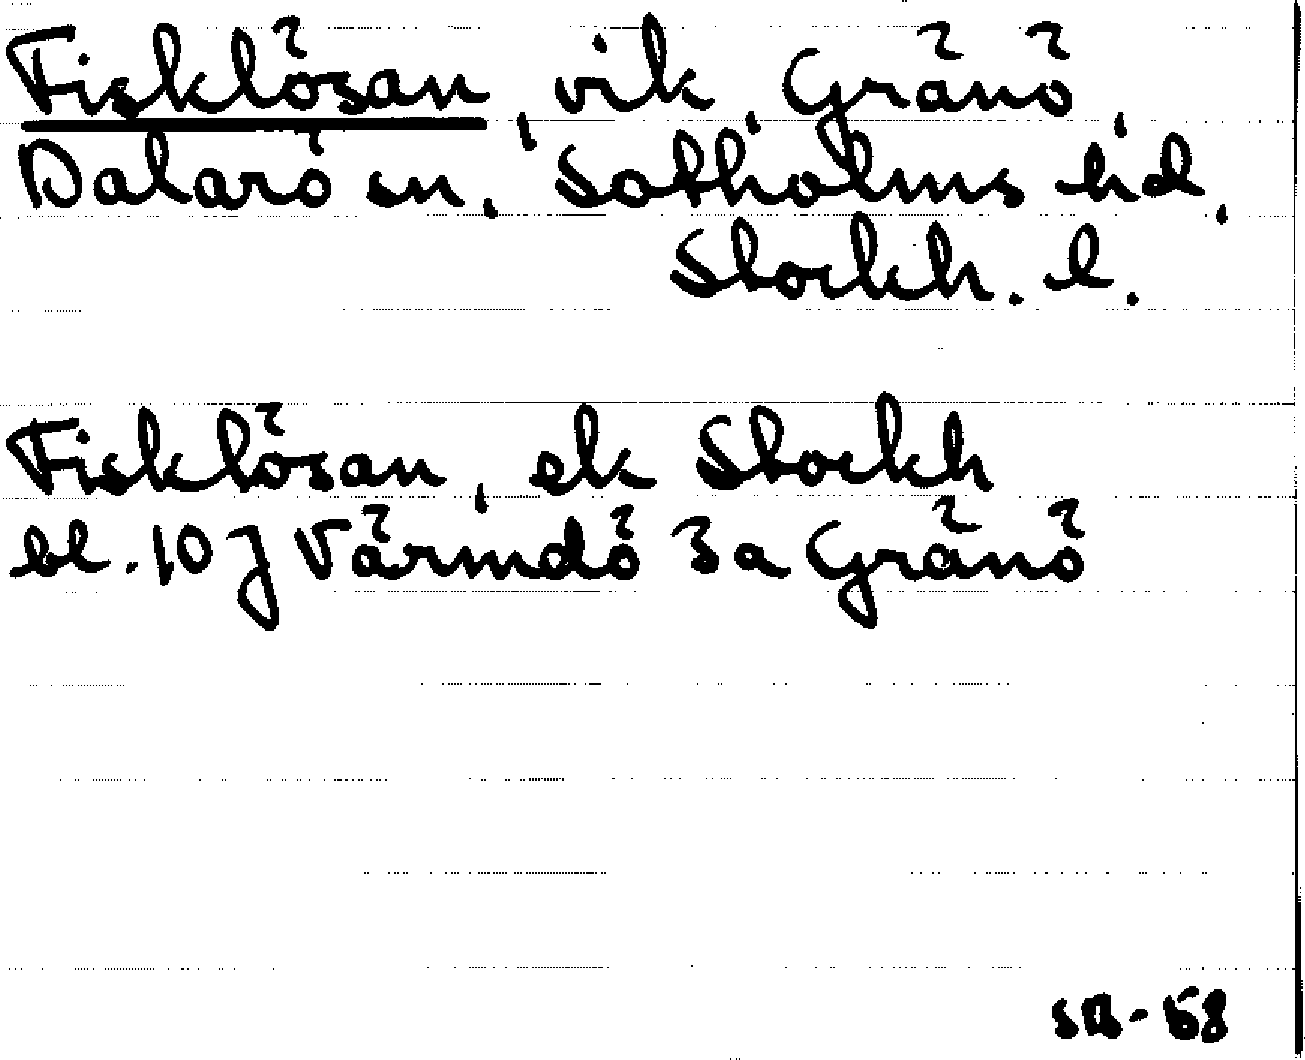 Fisklösan, vik, Gränö,
Dalarö sn, Sotholms hd,
Stockh. l.
Fisklösan, ek Stockh
bl. 10 J Värmdö 3a Gränö